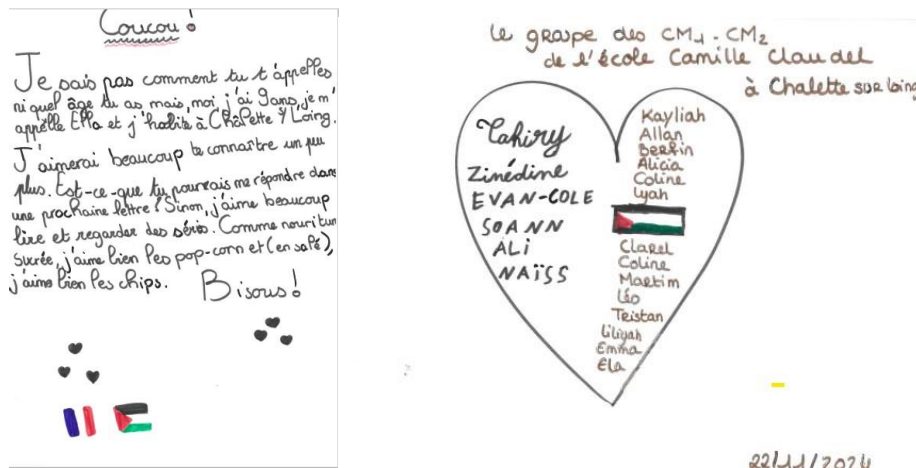 Coucou !
Je sais pas comment tu t'appelles
ni quel âge tu as mais, moi, j'ai 9 ans, je m'
appelle Ella et j'habite à Châlette s/ Loing.
J'aimerai beaucoup te connaître un peu
plus. Est-ce-que tu pourrais me répondre dans
une prochaine lettre ? Sinon, j'aime beaucoup
lire et regarder des séris. Comme nouritur
sucrée, j'aime bien les pop-corn et (en salé),
j'aime bien les chips. Bisous !
Le groupe des CM1-CM2
de l'école Camille Claudel
à Chalette sur Loing
Tahiry
Zinédine
EVAN-COLE
SOANN
ALI
NAÏSS
Kayliah
Allan
Berfin
Alicia
Coline
Lyah
Clarel
Coline
Martim
Léo
Tristan
Liliyah
Emma
Ela
22/11/2024